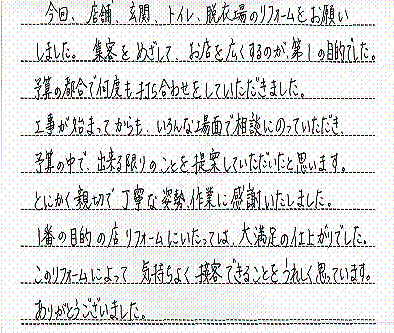 今回、店舗、玄関、トイレ、脱衣場のリフォームをお願い
しました。集客をめざして、お店を広くするのが、第1の目的でした。
予算の都合で何度も打ち合わせをしていただきました。
工事が始まってからも、いろんな場面で相談にのっていただき、
予算の中で、出来る限りのことを提案していただいたと思います。
とにかく親切で丁寧な姿勢、作業に感謝いたしました。
1番の目的の店リフォームにいたっては、大満足の仕上がりでした。
このリフォームによって気持ちよく接客できることをうれしく思っています。
ありがとうございました。